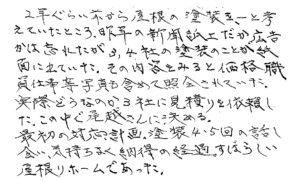 2年ぐらい前から屋根の塗装をーと考
えていたところ、昨年の新聞紙上だか広告
かは忘れたが、3,4社の塗装のことが紙
面に出ていた。その内容をみると価格、職
員仕事等写真も含めて照会されていた。
実際どうなのか3社に見積りを依頼し
た。この中で塗越さんに決める。
最初の対応、計画、塗装4.5回の話し
合い、気持ちよく納得の経過。すばらしい
屋根リホームであった。